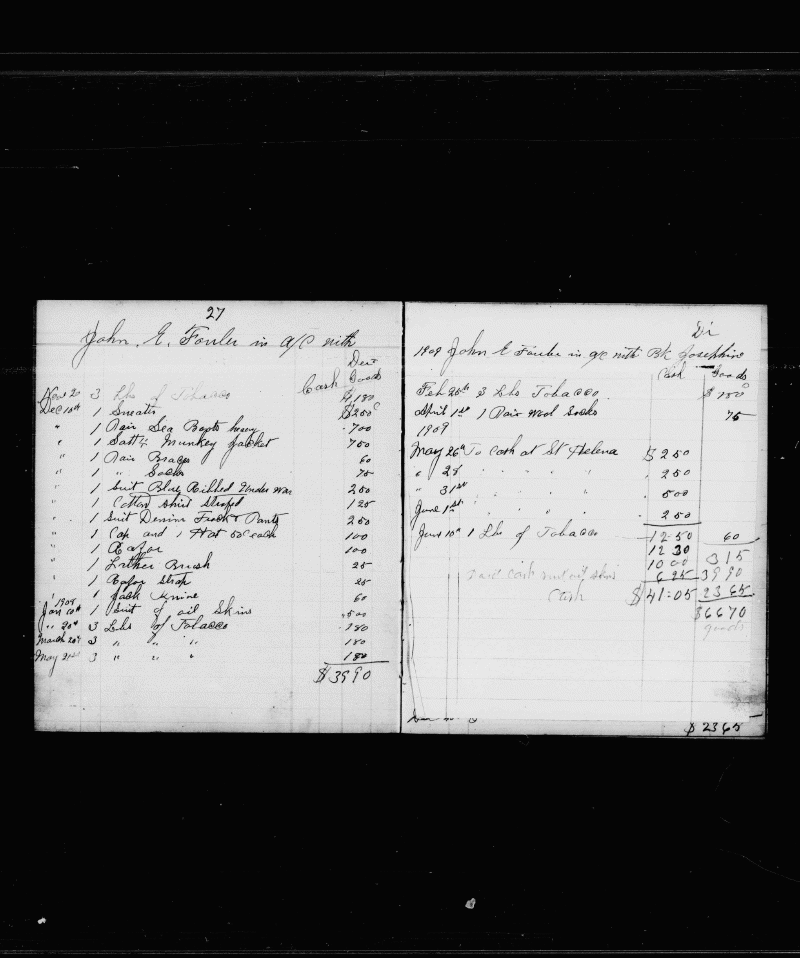 27
John. E. Fowler in a/c with
Dew
Cash Goods
Nov 20 3 Lbs of Tobacco $1,80
Dec 10th 1 Sweater $2.50
" 1 Pair Sea Boots heavy 7 00
" 1 Satt. Munkey Jacket 7 50
" 1 Pair Brace 60
" 1 " Socks 75
" 1 Suit Blue Ribbed Under War 2 50
" 1 Cotton Shirt Striped 1 25
" 1 Suit Denim Frock & Pants 2 50
" 1 Cap and 1 Hat 50c each 1 00
" 1 Razor 1 00
" 1 Lather Brush 25
" 1 Razor Strop 25
" 1 Jack Knive 60
1908
Jan 10th 1 Suit of oil Skins 5 00
" 20th 3 Lbs of Tobacco 1 80
March 20th 3 " " " 1 80
May 21st 3 " " " 1 80
$ 39 90
Dr
1909 John E Fowler in a/c with Bk Josephine
Cash Goods
Feb 25th 3 Lbs Tobacco $ 1 80
April 1st 1 Pair Wool Socks 75
1909
May 26th To Cash at St Helena $ 2 50
" 28 " " " " 2 50
" 31st " " " " 5 00
June 1st " " " " 2 50
June 10th 1 Lbs of Tobacco 12-50 60
12 30 3 15
10 00 39 90
Paid Cash oil skins 6 25 23 65
Cash $ 41:05
$66 70
goods
$ 23 65